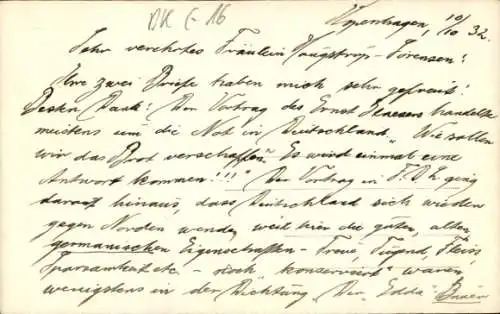 DK C-16
Kopenhagen, 10/10 32.
Sehr verehrtes Fräulein Haugstrup-Sørensen!
Ihre zwei Briefe haben mich sehr gefreut!
Besten Dank! Der Vortrag des Ernst handelte
meistens um die Not in Deutschland, "Wie sollen
wir das Brot verschaffen" "Es wird einmal eine
Antwort kommen!!!" Der Vortrag in ging
darauf hinaus, dass Deutschland sich wieder
gegen Norden wende, weil hier die guten, alten
germanischen Eigenschaften - Treue, Tugend, Fleiss
Sparsamkeit etc. - noch "konserviert" waren
wenigstens in der Dichtung "Der Edda".